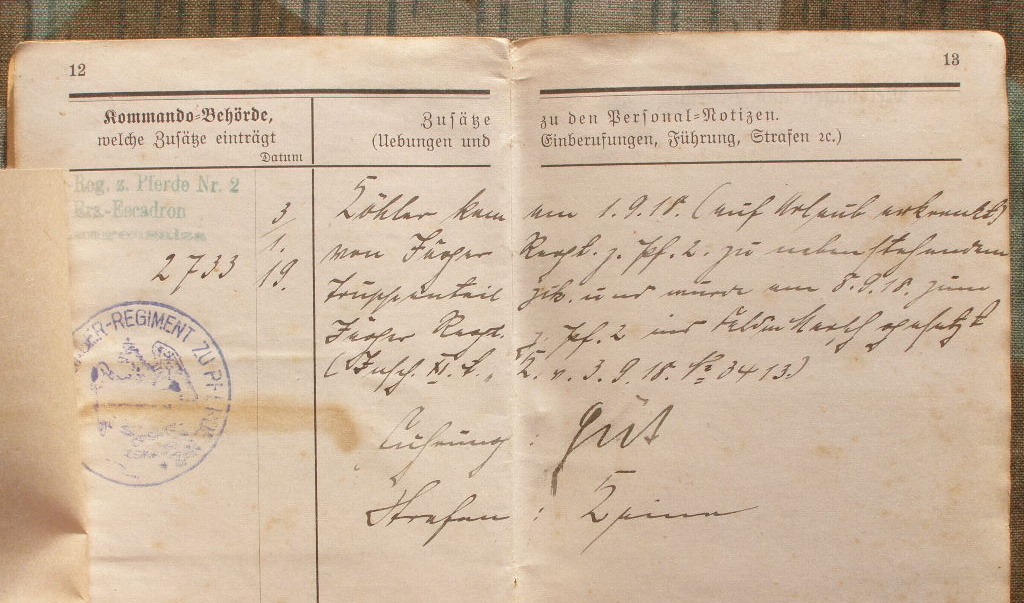 12
13
Kommando-Behörde,
welche Zusätze einträgt
Datum
Zusätze zu den Personal-Notizen.
(Uebungen und Einberufungen, Führung, Strafen ꝛc.)
Reg. z. Pferde Nr. 2
Ers.-Escadron
2733
3/
1.
19.
Köhler kam am 1.9.18. (auf Urlaub erkrankt)
von Jäger Regt. z. Pf. 2. zu nebenstehendem
Truppenteil zck. und wurde am 8.9.18. zum
Jäger Regt. z. Pf. 2 ins Feld in Marsch gesetzt
K. v. 3.9.18. No 3413.)
Führung : Gut
Strafen : Keine
ER-REGIMENT ZU PFERDE